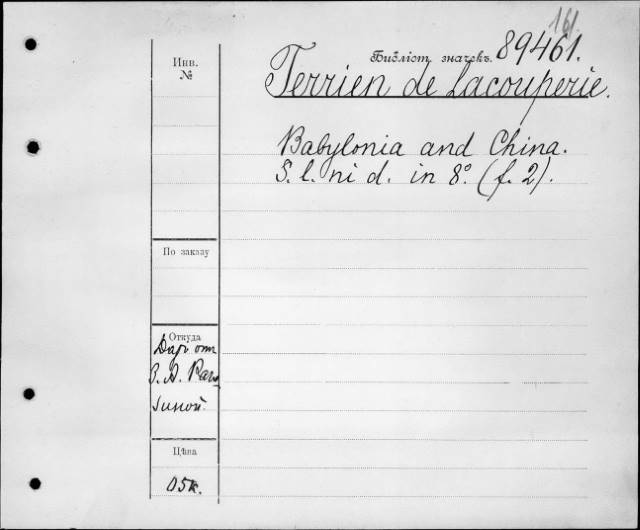 161
Библіот. значекъ. 89461.
Инв.
№
Terrien de Lacouperie.
Babylonia and China.
S. l. ni d. in 8º. (f. 2).
По заказу
Откуда
Даръ от
В. А.
Цѣна
05к.